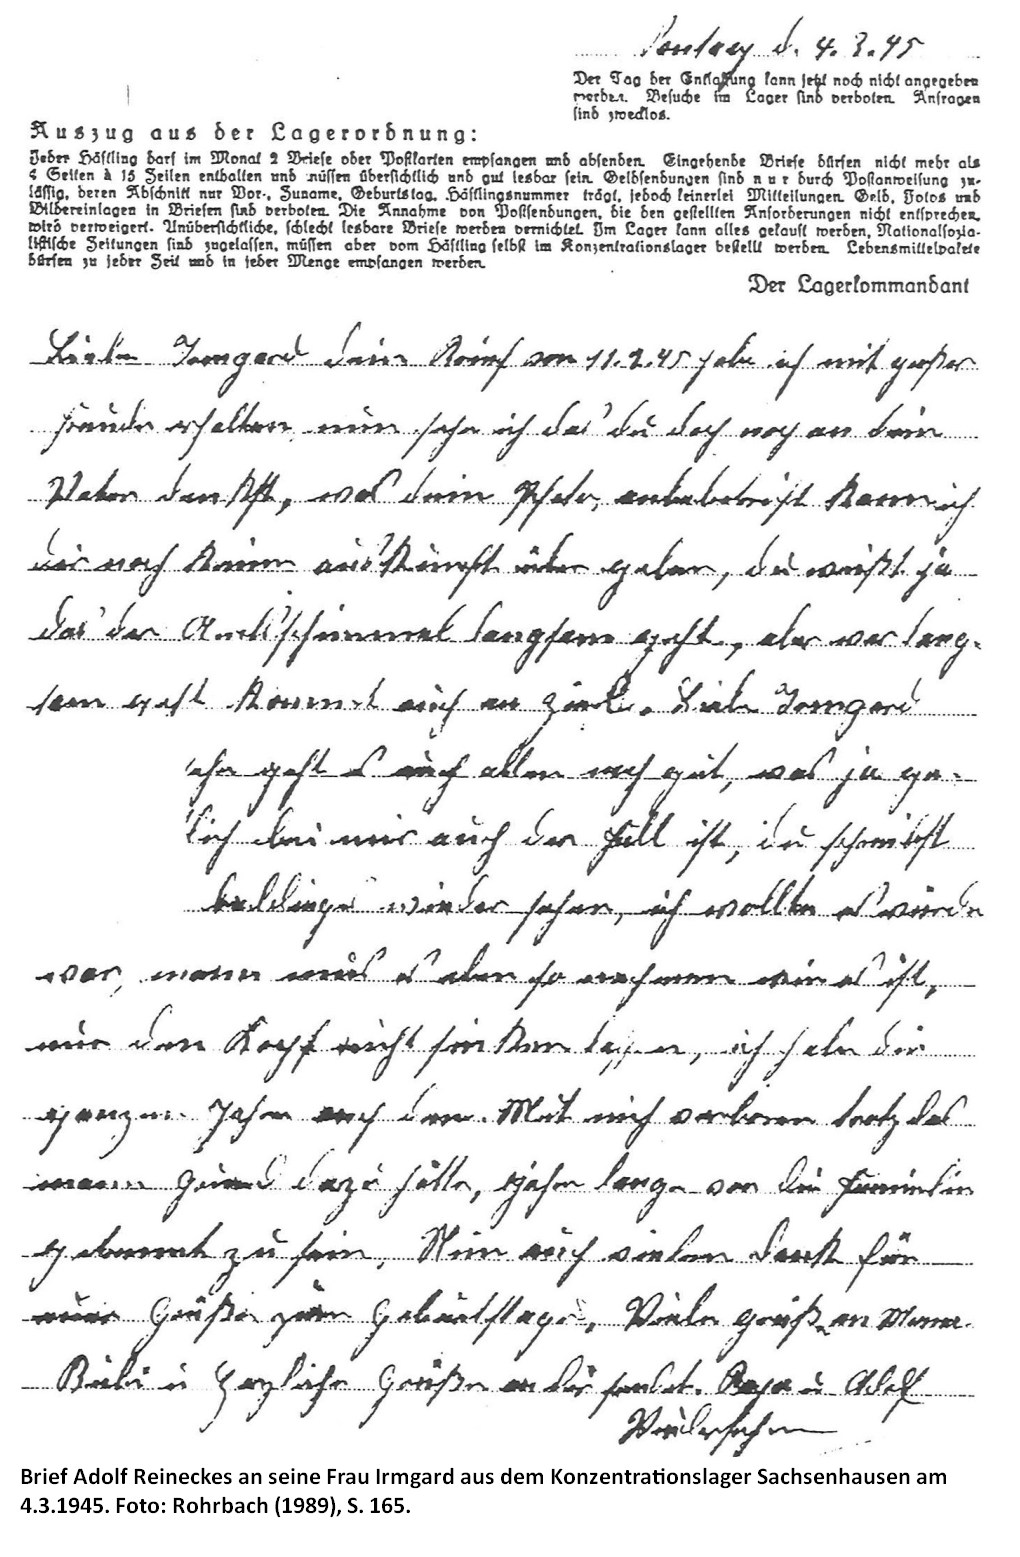 Sontag d. 4.3.45
Der Tag der Entlassung kann jetzt noch nicht angegeben
werden. Besuche im Lager sind verboten. Anfragen
sind zwecklos.
Auszug aus der Lagerordnung:
Jeder Häftling darf im Monat 2 Briefe oder Postkarten empfangen und absenden. Eingehende Briefe dürfen nicht mehr als
4 Seiten à 15 Zeilen enthalten und müssen übersichtlich und gut lesbar sein. Geldsendungen sind nur durch Postanweisung zu-
lässig, deren Abschnitt nur Vor-, Zuname, Geburtstag, Häftlingsnummer trägt, jedoch keinerlei Mitteilungen. Geld, Fotos und
Bildereinlagen in Briefen sind verboten. Die Annahme von Postsendungen, die den gestellten Anforderungen nicht entsprechen,
wird verweigert. Unübersichtliche, schlecht lesbare Briefe werden vernichtet. Im Lager kann alles gekauft werden, Nationalsozia-
listische Zeitungen sind zugelassen, müssen aber vom Häftling selbst im Konzentrationslager bestellt werden. Lebensmittelpakete
dürfen zu jeder Zeit und in jeder Menge empfangen werden.
Der Lagerkommandant
Liebe Irmgard dein Brief von 11.2.45 habe ich mit großer
Freude erhalten, nun sehe ich das du doch noch an dein
Vater denkst, was dein anbebetrift kann ich
dir noch keine auskunft über geben, du weißt ja
das der Amtsschimmel langsam geht, aber wer lang-
sam geht kommt auch an Ziele. Liebe Irmgard
geht es euch allen noch gut, was ja
lich bei mir auch der Fall ist, du schreibst
wieder sehen, ich wollte es würde
war, mann mus es aber so nehmen wie es ist,
nur den Kopf nicht sinken lassen, ich habe die
ganzen Jahre noch den Mut nich verloren trotz das
mann Grund dazu hätte, Jahre lang von die Familie
getrennt zu sein. Nun auch vielen dank für
eure Grüße zum Geburtstage. Viele grüße an Mama
Bubi u Herzliche Grüße an dir sendet. Papa u Adolf
Wiedersehen
Brief Adolf Reineckes an seine Frau Irmgard aus dem Konzentrationslager Sachsenhausen am
4.3.1945. Foto: Rohrbach (1989), S. 165.